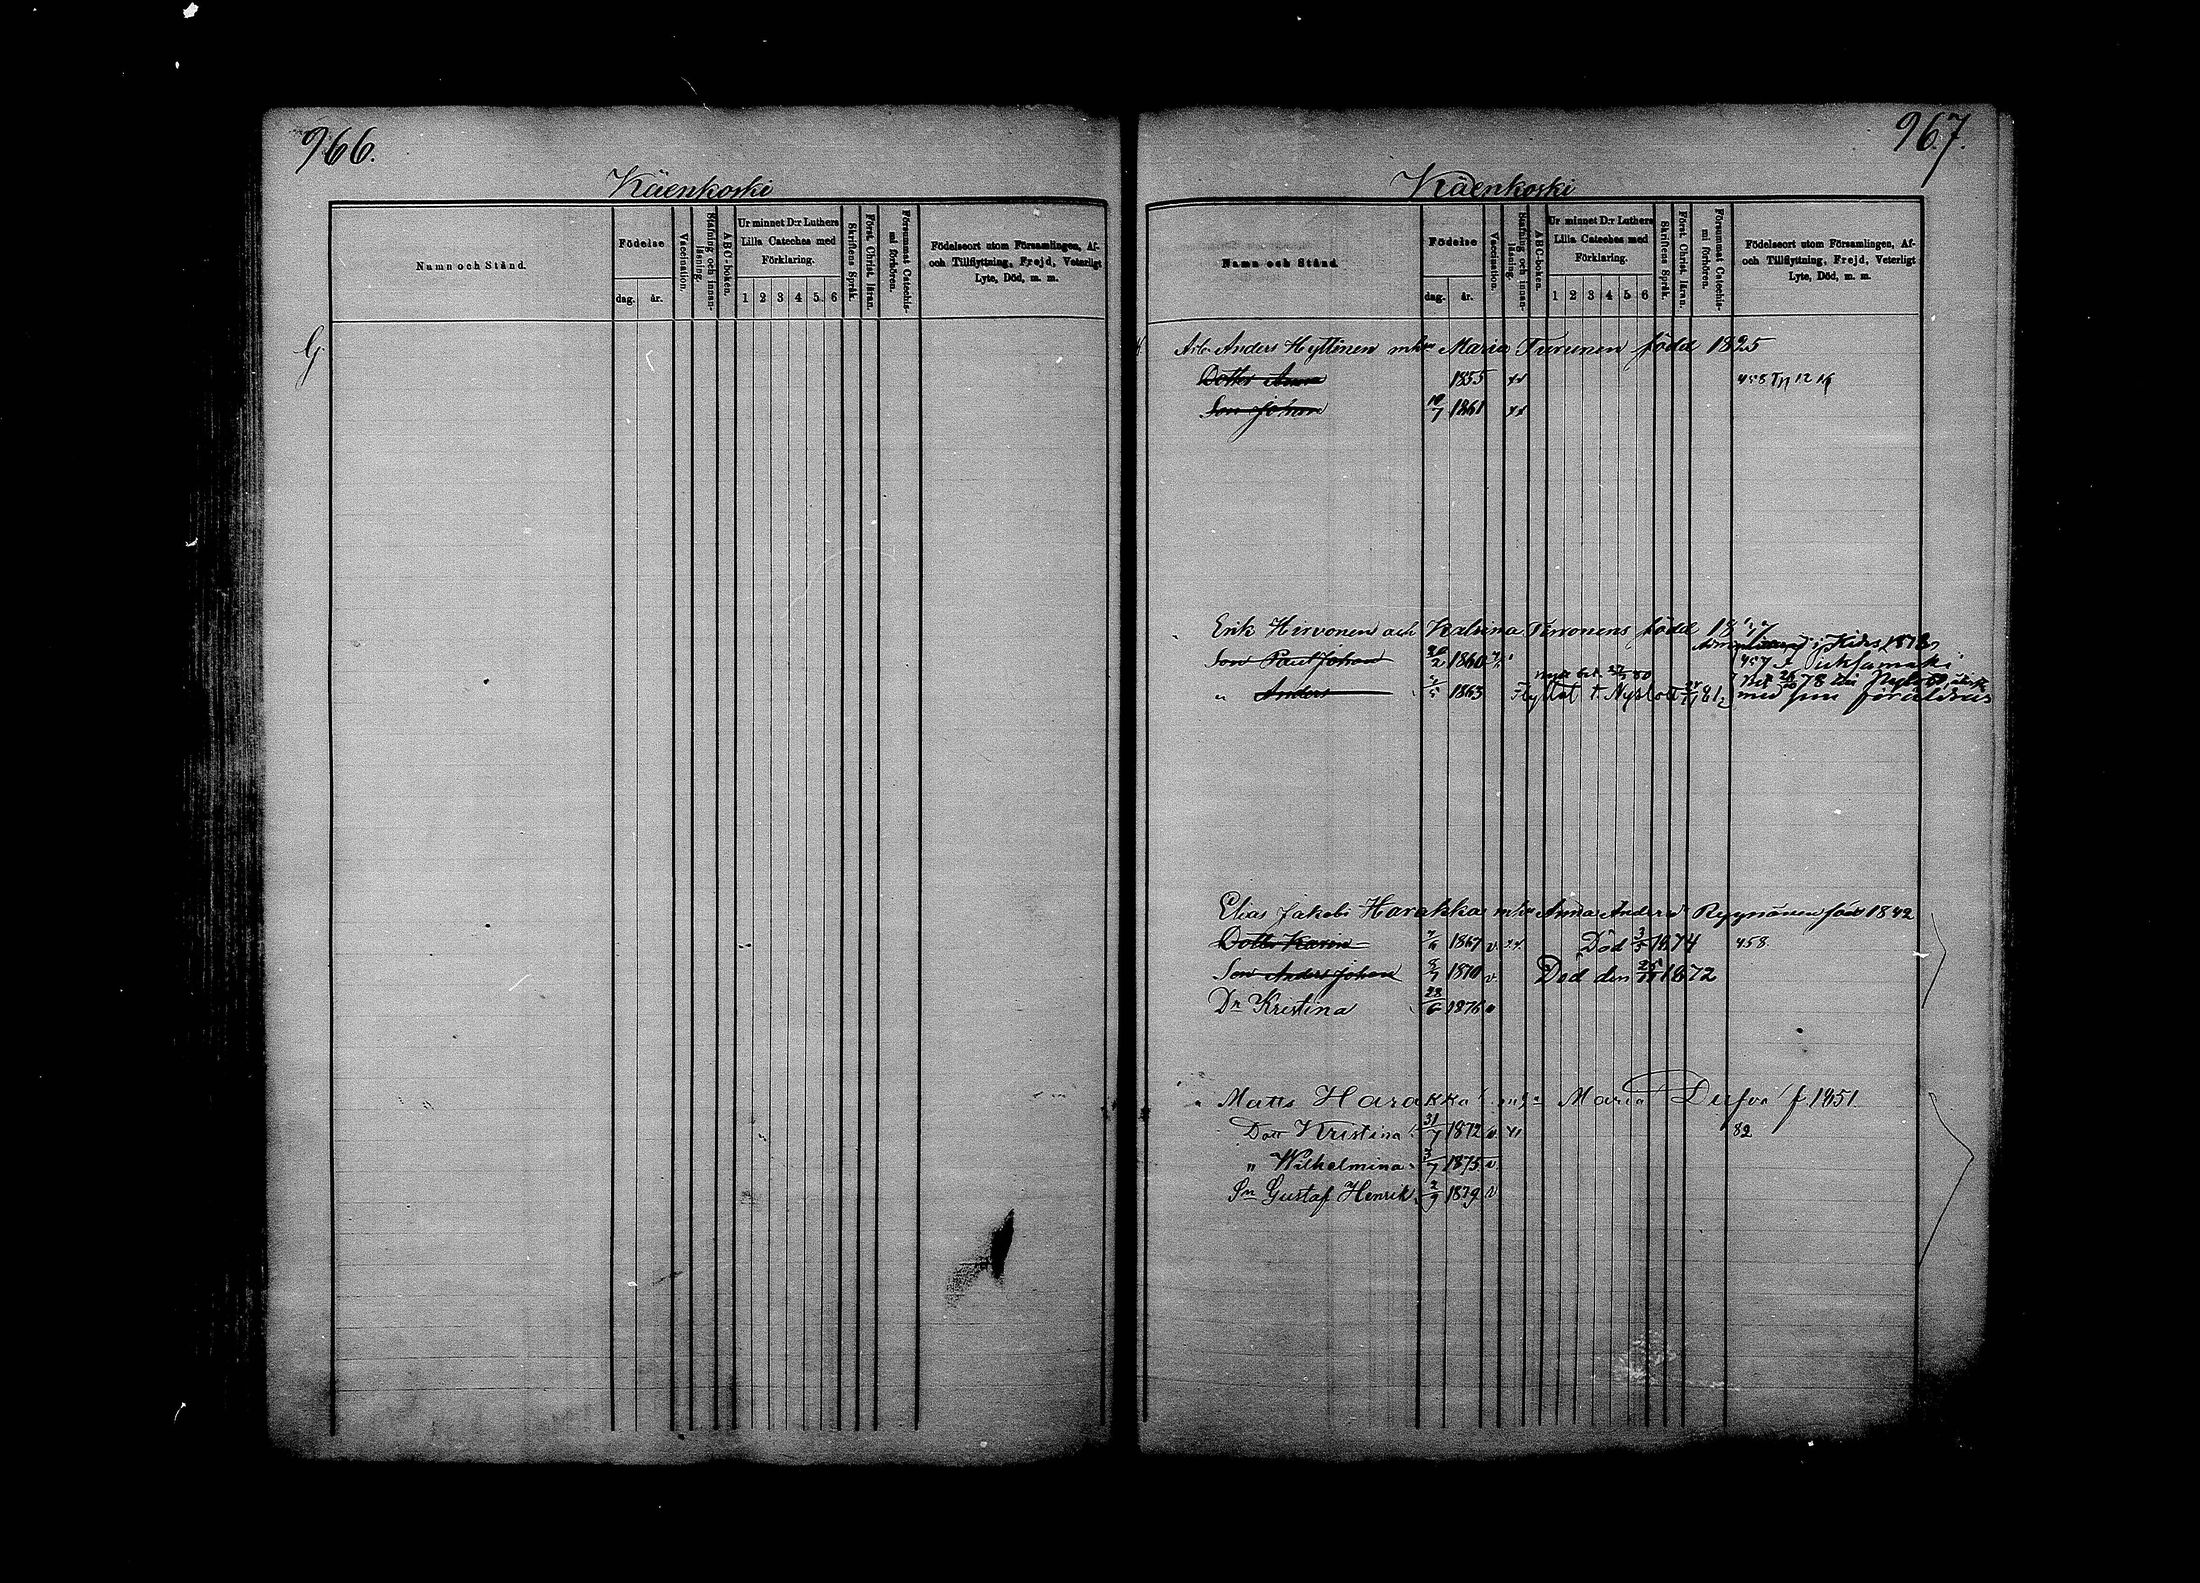 966.
Käenkoski
Namn och Stånd.
Födelse
dag.
år.
Vaccination.
Stafning och innan-
läsning.
ABC-boken.
Ur minnet D:r Luthers
Lilla Cateches med
Förklaring.
1 2 3 4 5. 6
Skriftens Språk.
Först. Christ. läran.
Försummat Catechis-
mi förhören.
Födelseort utom Församlingen, Af-
och Tillflyttning, Frejd, Veterligt
Lyte, Död, m. m.
G
967.
Käenkoski
Namn och Stånd.
Födelse
dag.
år.
Vaccination.
Stafning och innan-
läsning.
ABC-boken.
Ur minnet D:r Luthers
Lilla Cateches med
Förklaring.
1 2 3 4 5 6
Skriftens Språk.
Först. Christ. läran.
Försummat Catechis-
mi förhören.
Födelseort utom Församlingen, Af-
och Tillflyttning, Frejd, Veterligt
Lyte, Död, m. m.
Anders Hyttinen Maria Turunen född 1825
Dotter Anna 1855 458
Son Johan 10/7 1861
Erik Hirvonen och Katrina född
Son Paul Johan 1860 457
" Anders 1863 Flyttat t Nyslott 81 med sine föräldrar
Elias Jakobs Harakka Anna Anders Ryynänen född 1842
Dotter Karin 1867 v Död 3/5 1874 458
Son Anders Johan 8/7 1870 v Död den 1872
Dr Kristina 28/6 1876 v
Matts Harakka Maria Dufva f. 1851.
Dott Kristina 31/7 1872 v 82
" Wilhelmina 3/7 1875 v.
Sn Gustaf Henrik 2/9 1879 v